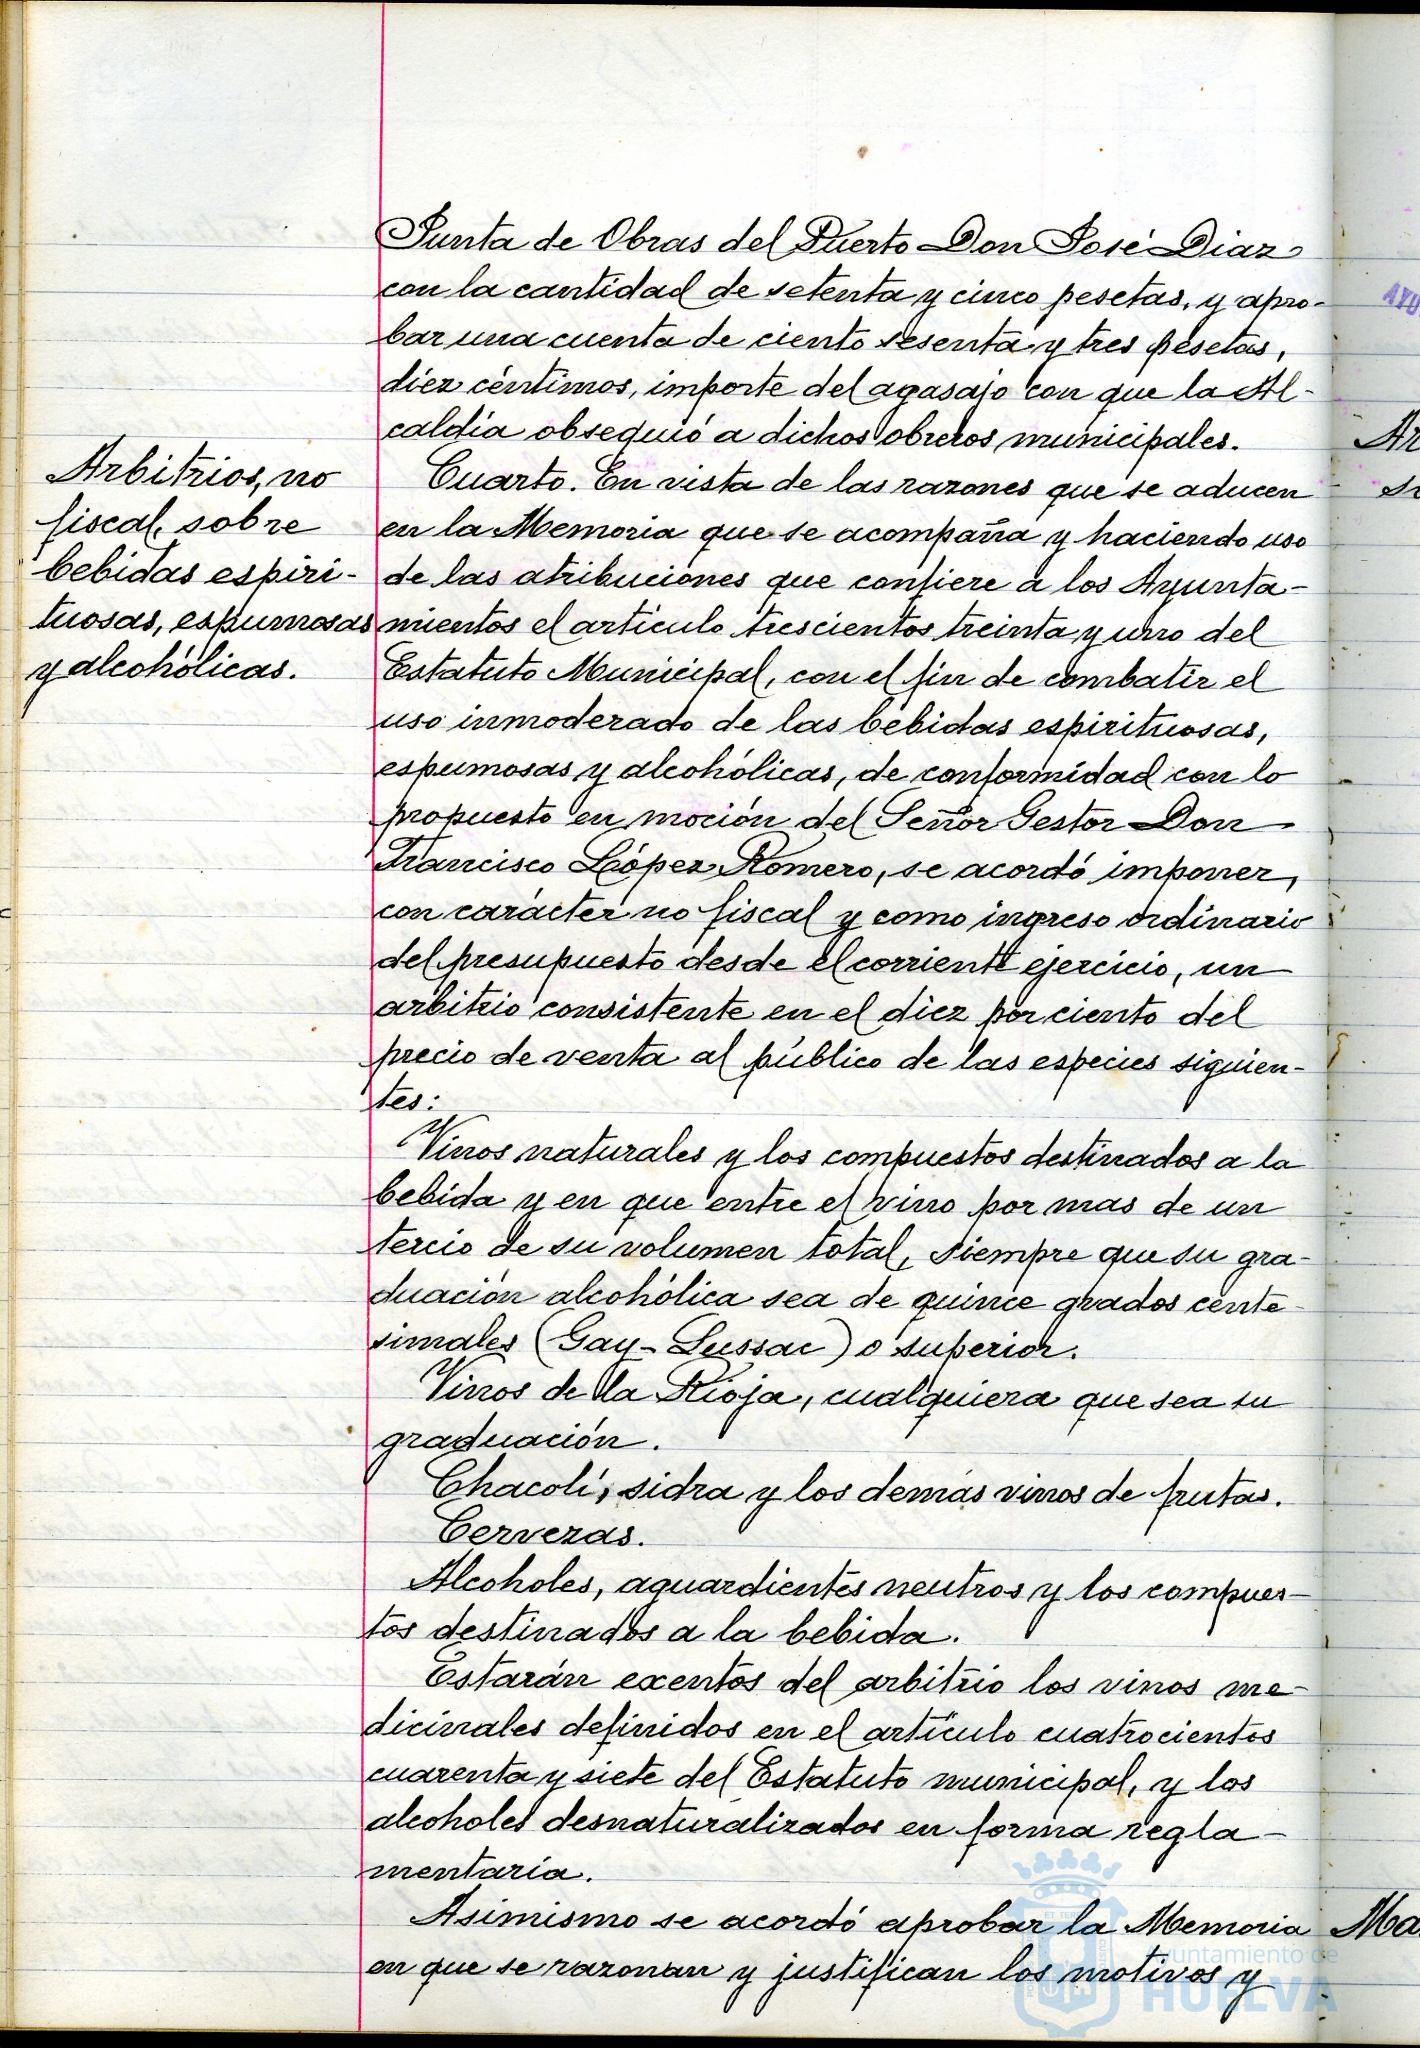 Junta de Obras del Puerto Don José Diaz
con la cantidad de setenta y cinco pesetas, y apro-
bar una cuenta de ciento sesenta y tres pesetas,
diez céntimos, importe del agasajo con que la Al-
caldia obsequió a dichos obreros municipales.
Arbitrios, no
fiscal, sobre
bebidas espiri-
tuosas, espumosas
y alcohólicas.
Cuarto. En vista de las razones que se aducen
en la Memoria que se acompaña y haciendo uso
de las atribuciones que confiere a los Ayunta-
mientos el articulo trescientos treinta y uno del
Estatuto Municipal, con el fin de combatir el
uso inmoderado de las bebidas espirituosas,
espumosas y alcohólicas, de conformidad con lo
propuesto en moción del Señor Gestor Don
Francisco López Romero, se acordó imponer,
con carácter no fiscal y como ingreso ordinario
del presupuesto desde el corriente ejercicio, un
arbitrio consistente en el diez por ciento del
precio de venta al público de las especies siguien-
tes:
Vinos naturales y los compuestos destinados a la
bebida y en que entre el vino por mas de un
tercio de su volumen total, siempre que su gra-
duación alcohólica sea de quince grados cente-
simales (Gay-Lussac) o superior.
Vinos de la Rioja, cualquiera que sea su
graduación.
Chacolí, sidra y los demás vinos de frutas.
Cervezas.
Alcoholes, aguardientes neutros y los compues-
tos destinados a la bebida.
Estarán exentos del arbitrio los vinos me-
dicinales definidos en el artículo cuatrocientos
cuarenta y siete del Estatuto municipal, y los
alcoholes desnaturalizados en forma regla-
mentaria.
Asimismo se acordó aprobar la Memoria
en que se razonan y justifican los motivos y
Ayuntamiento de
HUELVA
AYU
Ar
Ma